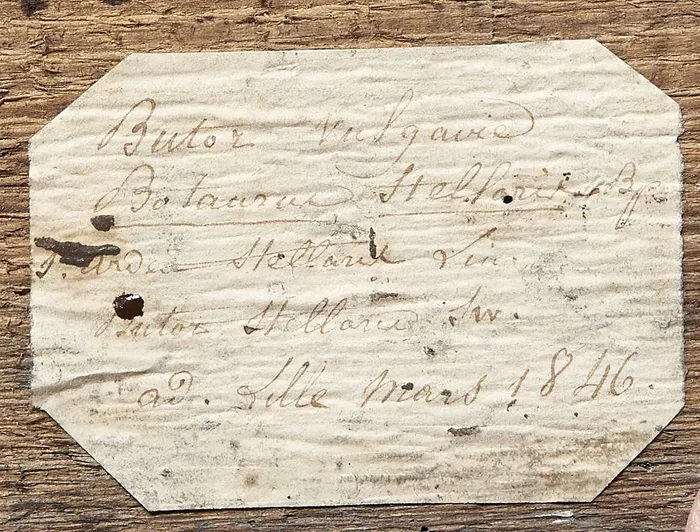 Butor vulgaire
Botaurus Stellaris Bp
Ardea Stellaris Lin.
Butor Stellaris Sw.
ad. Lille Mars 1846.